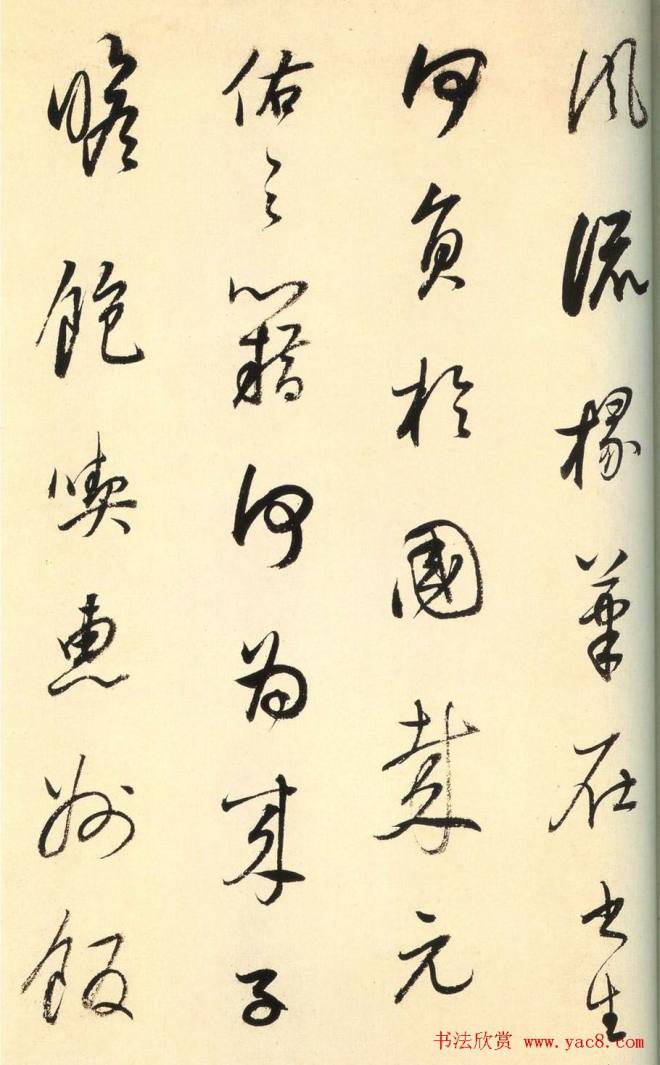 風流椽筆在書生
何負於國哉元
佑之籍何為來子
瞻飽喫惠州飯
书法欣赏 www.yac8.com